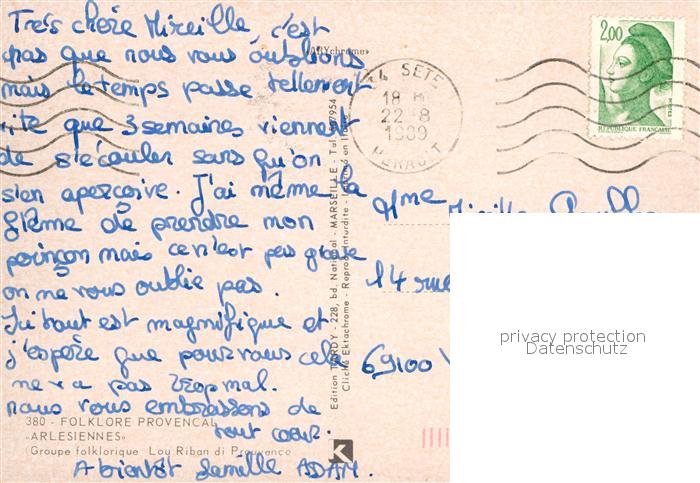 Très chère Mireille, c'est
pas que nous vous oublions
mais le temps passe tellement
vite que 3 semaines viennent
de s'écouler sans qu'on
s'en aperçoive. J'ai même la
flème de prendre mon
poinçon mais ce n'est pas grave
on ne vous oublie pas.
Ici tout est magnifique et
j'espère que pour vous cela
ne va pas trop mal.
nous vous embrassons de
tout coeur.
A bientôt famille ADAM.
380 - FOLKLORE PROVENCAL
«ARLESIENNES»
(Groupe folklorique Lou Riban di Prouvenco
Edition TARDY - 228, bd. National - MARSEILLE - Tul 
Cliché Ektachrome - Reprod. Interdite - Imprimé en
K
SETE
18 H
22-8
1989
HERAULT
2,00
REPUBLIQUE FRANÇAISE
POSTES
Mme Mireille
14 rue
69100 V
privacy protection
Datenschutz